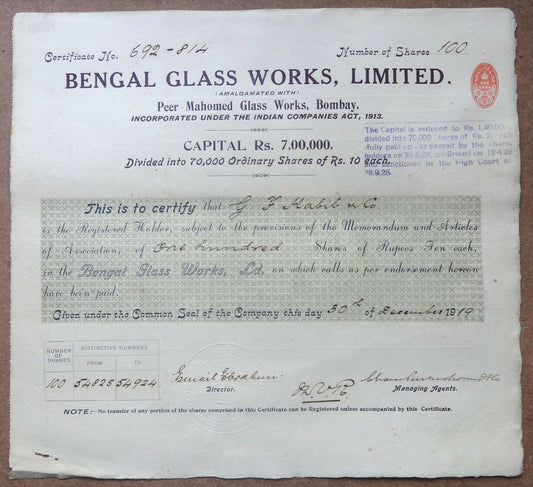 Certificate No. 692-814 Number of Shares 100
BENGAL GLASS WORKS, LIMITED.
(AMALGAMATED WITH)
Peer Mahomed Glass Works, Bombay.
INCORPORATED UNDER THE INDIAN COMPANIES ACT, 1913.
CAPITAL Rs. 7,00,000.
Divided into 70,000 Ordinary Shares of Rs. 10 each.
The Capital is reduced to Rs 1,40,000
divided into 70,000 shares of Rs. 2/- each
-fully paid up - as passed by the share-
holders on 26.3.28, confirmed on 12.4.28
and sanctioned by the High Court on
28.9.28.
This is to certify that G F Habib & Co.
is the Registered Holder, subject to the provisions of the Memorandum and Articles
of Association, of One hundred Shares of Rupees Ten each,
in the Bengal Glass Works, Ld. on which calls as per endorsement hereon
have been paid.
Given under the Common Seal of the Company this day 30th of December 1919
NUMBER OF SHARES
DISTINCTIVE NUMBERS
FROM TO
100 54825 54924
Director.
Managing Agents.
NOTE:—No transfer of any portion of the shares comprised in this Certificate can be Registered unless accompanied by this Certificate.